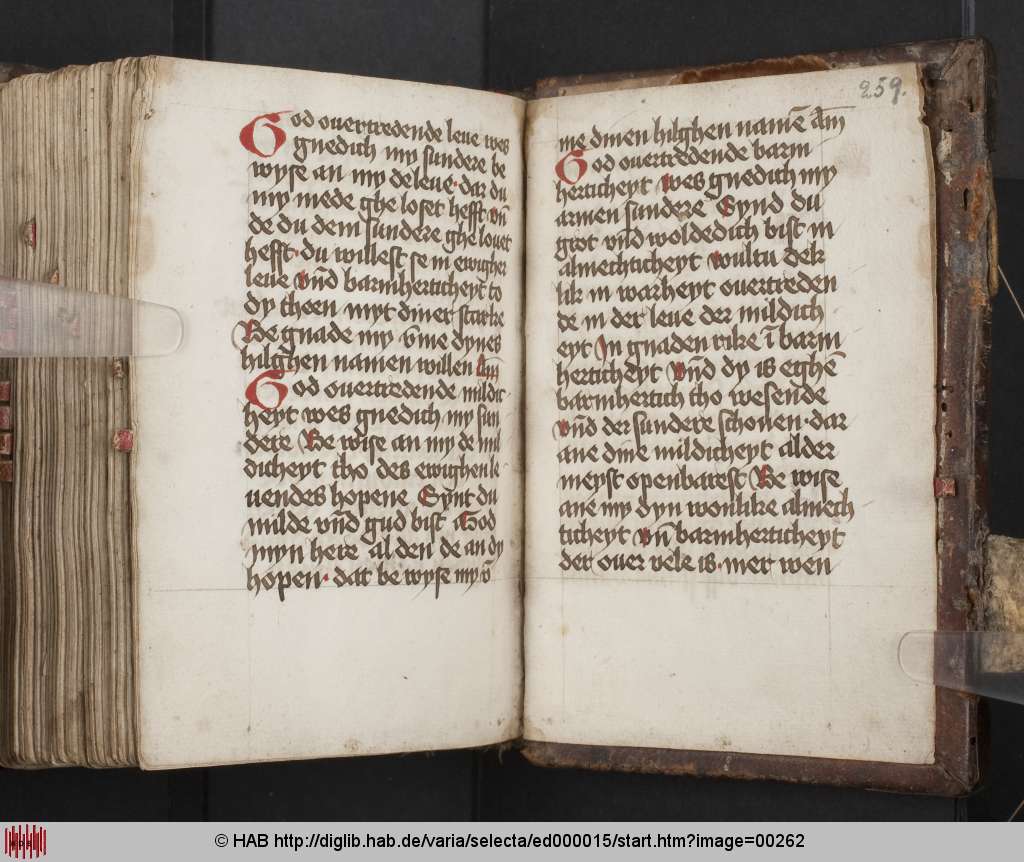 God ouertredende leue wes
gnedich my sundere be
wyse an my de leue · dar du
my mede ghe loset hefft vn̄
de du dem sundere ghe louet
hefft · du willest se in ewigher
leue vnd barmherticheyt to
dy theen myt diner starke
Be gnade my vm̄e dynes
hilghen namen willen Am̄
God ouertredende mildic
heyt wes gnedich my sun
dere Be wise an my de mil
dicheyt tho des ewighen le
uendes hopene Synt du
milde vnd gud bist God
myn here al den de an dy
hopen · dat be wyse my v̄
259.
me dinen hilghen namē Am̄
God ouertredende barm
herticheyt wes gnedich my
armen sundere Synd du
grot vnd woldedich bist in
almechticheyt wultu dek
lik in warheyt ouertreden
de in der leue der mildich
eyt In gnaden rike ī barm
herticheyt vnd dy is eighē
barmhertich tho wesende
vnd der sundere schonen · dar
ane dine mildicheyt alder
meyst openbarest Be wise
ane my dyn wonlike almech
ticheyt vn̄ barmherticheyt
der ouer vele is · mer wen
© HAB http://diglib.hab.de/varia/selecta/ed000015/start.htm?image=00262